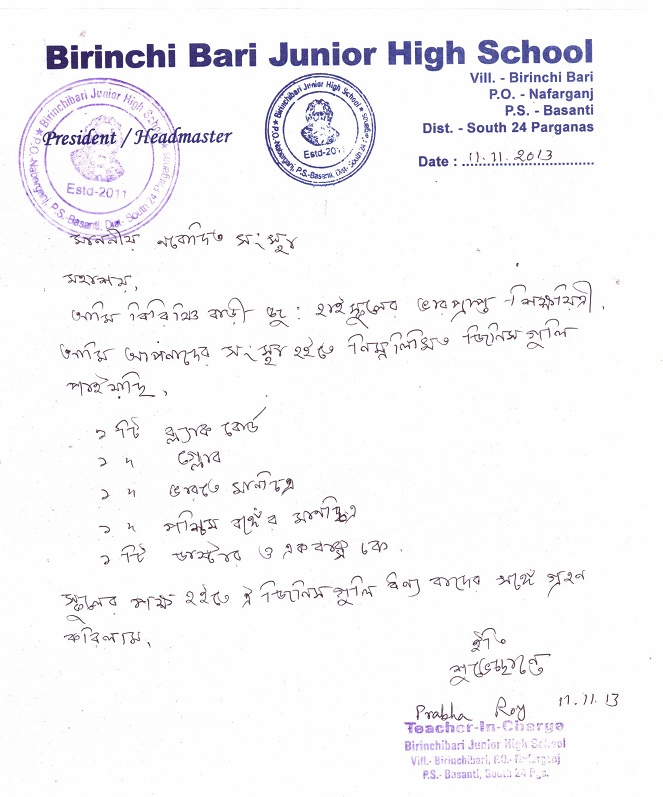 Birinchi Bari Junior High School
Vill. - Birinchi Bari
P.O. - Nafarganj
P.S. - Basanti
Dist. - South 24 Parganas
Date : 11.11.2013
President / Headmaster
Birinchibari Junior High School
P.O.-Nafarganj, P.S.-Basanti, Dist.- South 24 Parganas
Estd-2011
Birinchibari Junior High School
P.O.-Nafarganj, P.S.-Basanti, Dist- South 24 Parganas
Estd-2011
মাননীয় নবোদিত সংস্থা
মহাশয়,
আমি বিরিঞ্চি বাড়ী জু: হাইস্কুলের ভারপ্রাপ্ত শিক্ষয়িত্রী।
আমি আপনাদের সংস্থা হইতে নিম্নলিখিত জিনিস গুলি
পাইয়াছি,
১ টি ব্ল্যাক বোর্ড
১ " গ্লোব
১ " ভারতে মানচিত্র
১ " পশ্চিম বঙ্গের মানচিত্র
১ টি ডাস্টার ও এক বাক্স চক.
স্কুলের পক্ষ হইতে ঐ জিনিস গুলি ধন্য বাদের সঙ্গে গ্রহন
করিলাম,
ইতি
শুভেচ্ছান্তে
Prabha Roy 11.11.13
Teacher-In-Charge
Birinchibari Junior High School
Vill.- Birinchibari, P.O.- Nafarganj
P.S.- Basanti, South 24 Pgs.